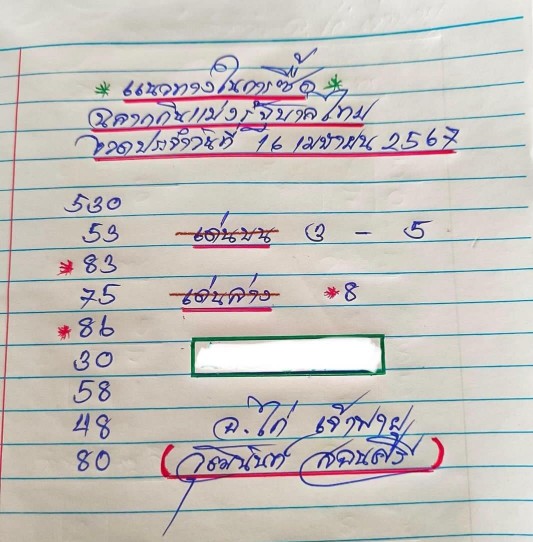 * แนวทางในการซื้อ *
ฉลากกินแบ่งรัฐบาลไทย
งวดประจำวันที่ 16 เมษายน 2567
530
53 เด่นบน 3 - 5
* 83
75 เด่นล่าง * 8
* 86
30
58
48 อ.ไก่ เจ้าพายุ
80 (วุฒินันท์ สอนศรี)